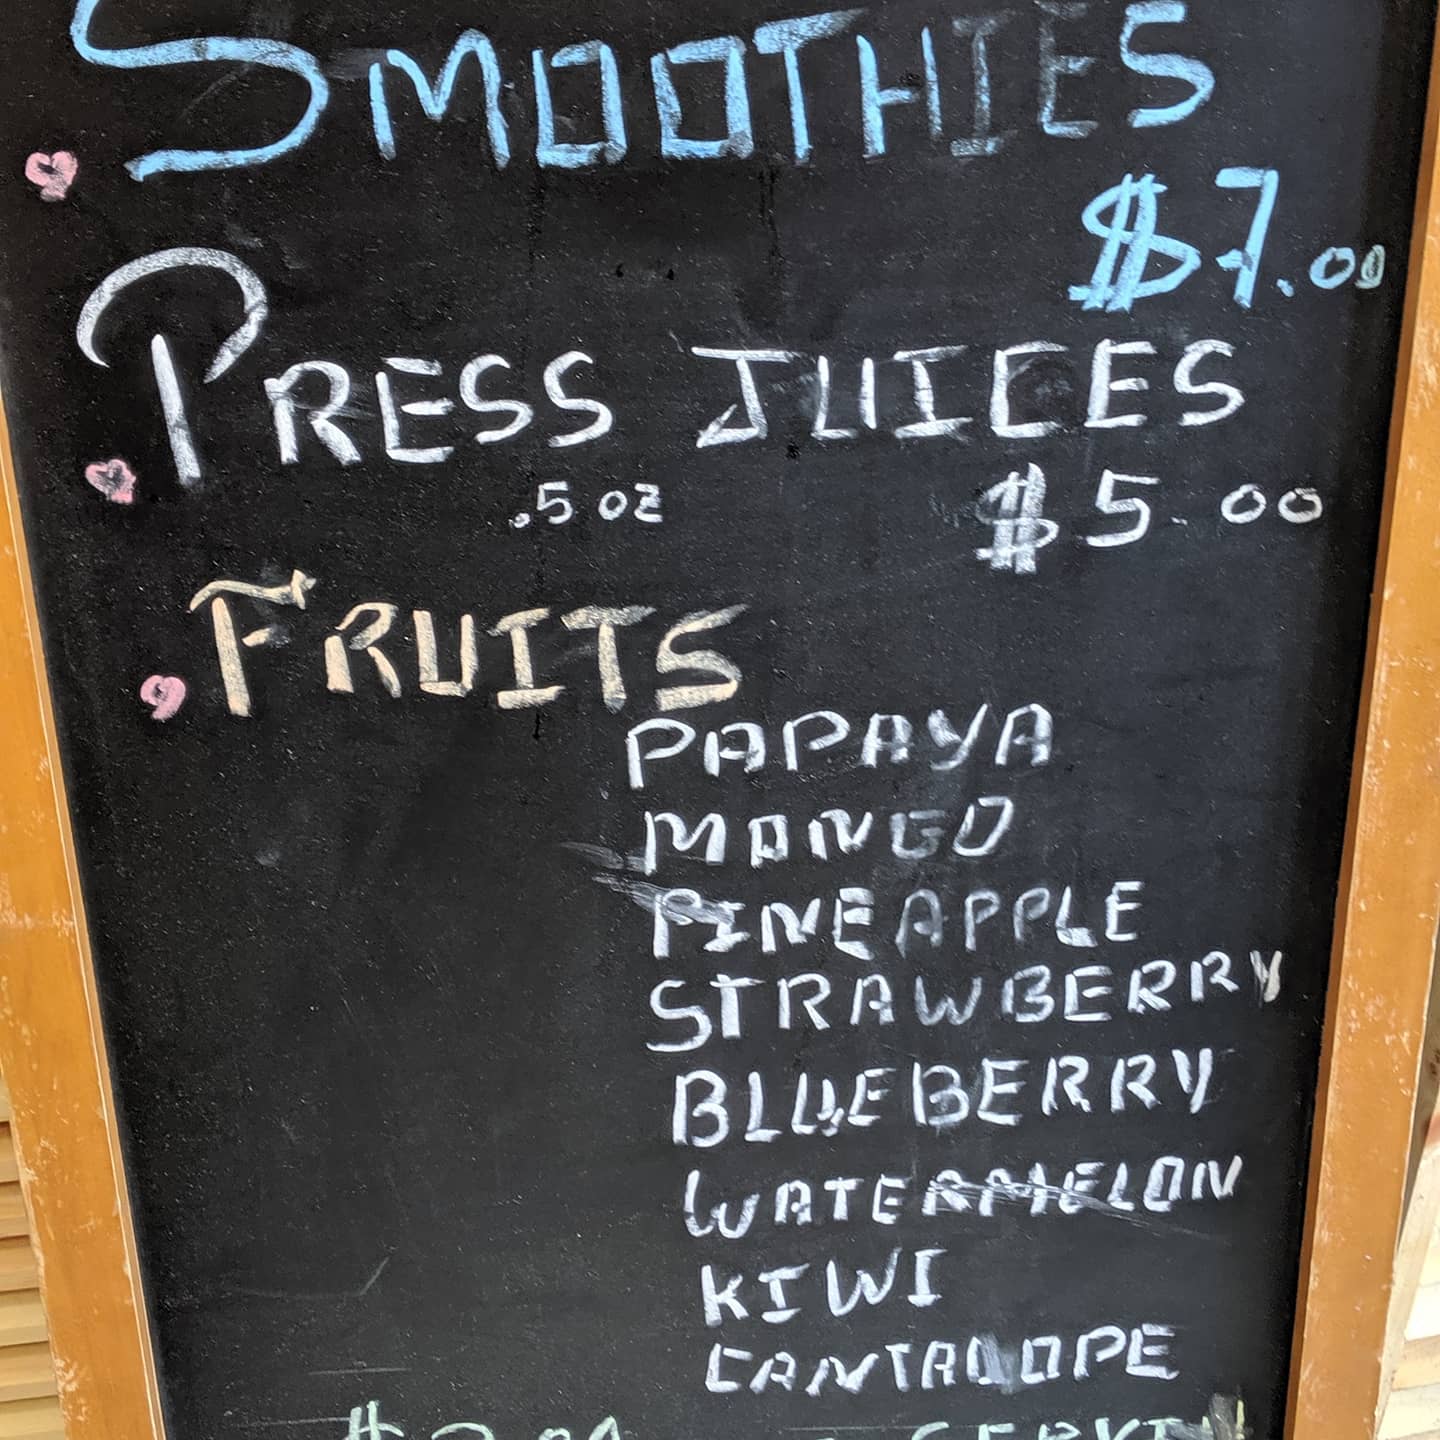 SMOOTHIES
$7.00
PRESS JUICES
.5 OZ $5.00
FRUITS
PAPAYA
MANGO
PINEAPPLE
STRAWBERRY
BLUEBERRY
WATERMELON
KIWI
CANTALOPE